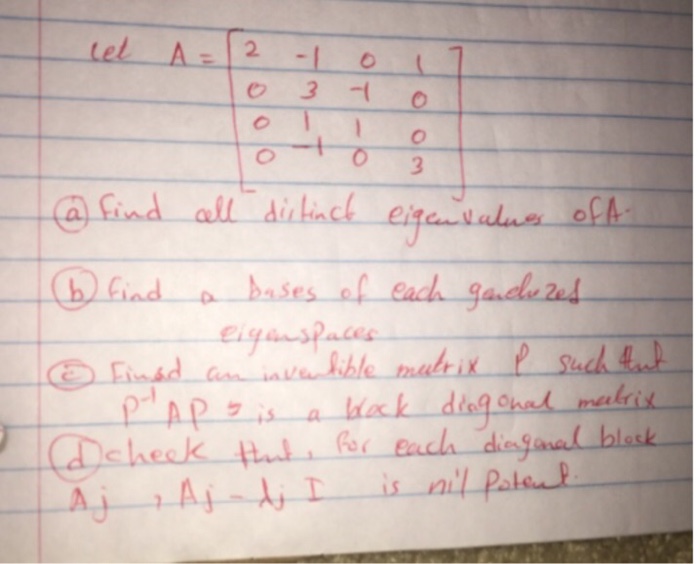 let A = [2 -1 0 1
0 3 -1 0
0 1 1 0
0 -1 0 3]
(a) find all distinct eigenvalues of A.
(b) find a bases of each
eigenspaces
(c) Fined an invertible matrix P such that
P⁻¹AP is a block diagonal matrix
(d) check that, for each diagonal block
Aj, Aj - λj I is nilpotent.